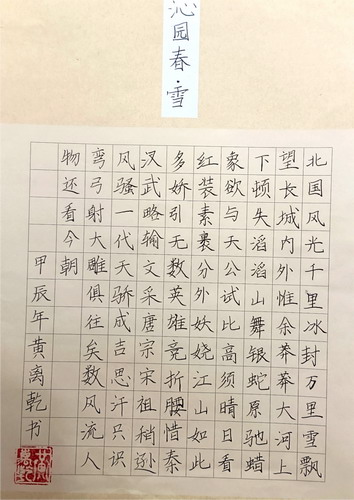 沁园春·雪
北国风光千里冰封万里雪飘
望长城内外惟余莽莽大河上
下顿失滔滔山舞银蛇原驰蜡
象欲与天公试比高须晴日看
红装素裹分外妖娆江山如此
多娇引无数英雄竞折腰惜秦
汉武略输文采唐宗宋祖稍逊
风骚一代天骄成吉思汗只识
弯弓射大雕俱往矣数风流人
物还看今朝
甲辰年黄离乾书